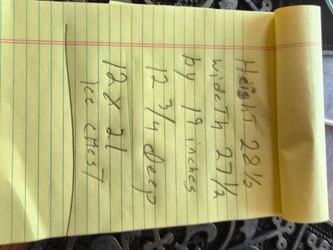 Height 28½
wideTh 27½
by 19 inches
12 3/4 deep
12 x 21
Ice CHEST